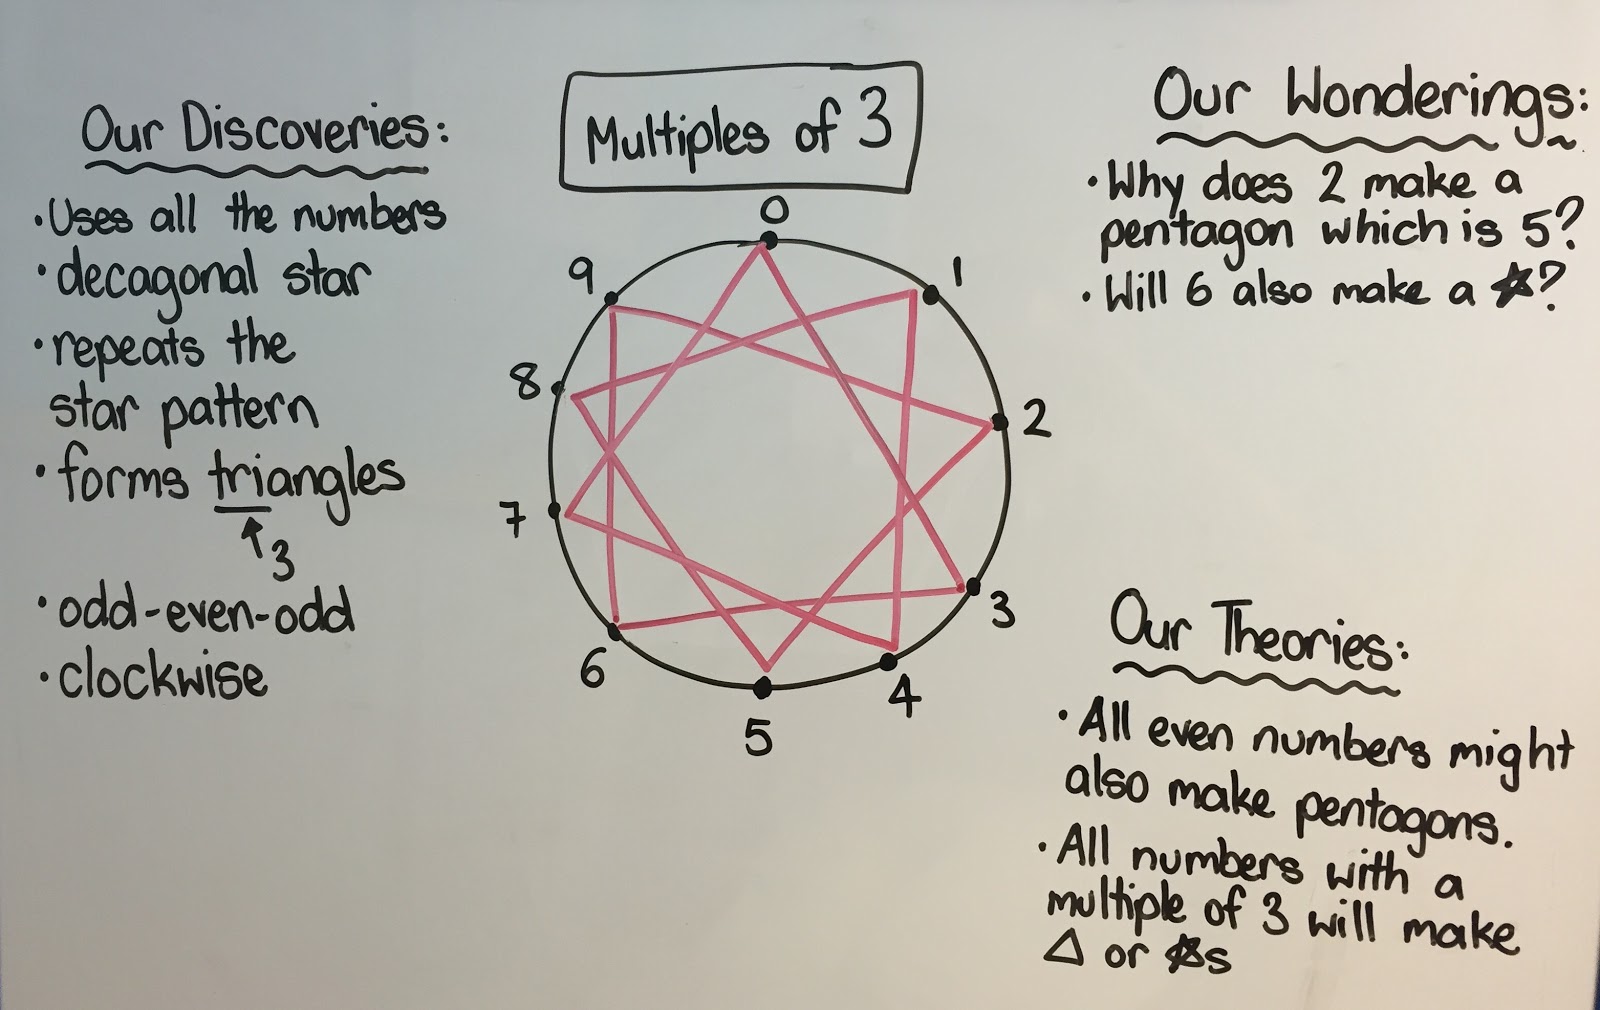 Our Discoveries:
•Uses all the numbers
•decagonal star
•repeats the
star pattern
•forms triangles
3
•odd-even-odd
•clockwise
Multiples of 3
0
1
2
3
4
5
6
7
8
9
Our Wonderings:
•Why does 2 make a
pentagon which is 5?
•Will 6 also make a ☆?
Our Theories:
•All even numbers might
also make pentagons.
•All numbers with a
multiple of 3 will make
△ or ☆s